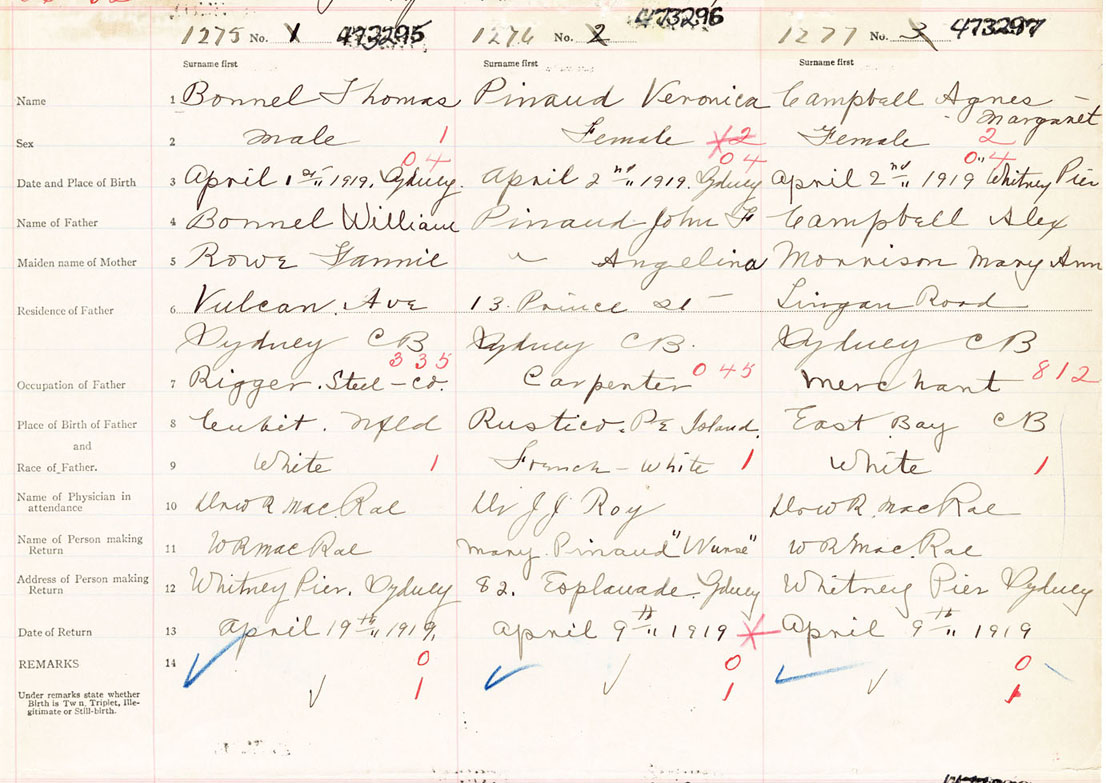 1275 No. 1 473295 1276 No. 2 473296 1277 No. 3 473297
Surname first Surname first Surname first
Name 1 Bonnel Thomas Pinaud Veronica Campbell Agnes - Margaret
Sex 2 male 1 Female 2 Female 2
04 04 04
Date and Place of Birth 3 April 1st " 1919. Sydney. April 2nd " 1919. Sydney April 2nd " 1919 Whitney Pier
Name of Father 4 Bonnel William Pinaud John F Campbell Alex
Maiden name of Mother 5 Rowe Fannie " Angelina Morrison Mary Ann
Residence of Father 6 Vulcan. Ave 13. Prince St - Lingan Road
Sydney CB Sydney CB. Sydney CB
335 045 812
Occupation of Father 7 Rigger. Steel-Co. Carpenter Merchant
Place of Birth of Father 8 Nfld Rustico. PE Island. East Bay CB
and
Race of Father. 9 White 1 French - White 1 White 1
Name of Physician in attendance 10 Dr W R MacRae Dr J J Roy Dr W R MacRae
Name of Person making Return 11 W R MacRae Mary Pinaud "Nurse" W R MacRae
Address of Person making Return 12 Whitney Pier. Sydney 82. Esplanade. Sydney Whitney Pier Sydney
Date of Return 13 April 19th " 1919. April 9th " 1919 April 9th " 1919
REMARKS 14 0 0 0
Under remarks state whether Birth is Twin, Triplet, Ille-
gitimate or Still-birth. 1 1 1